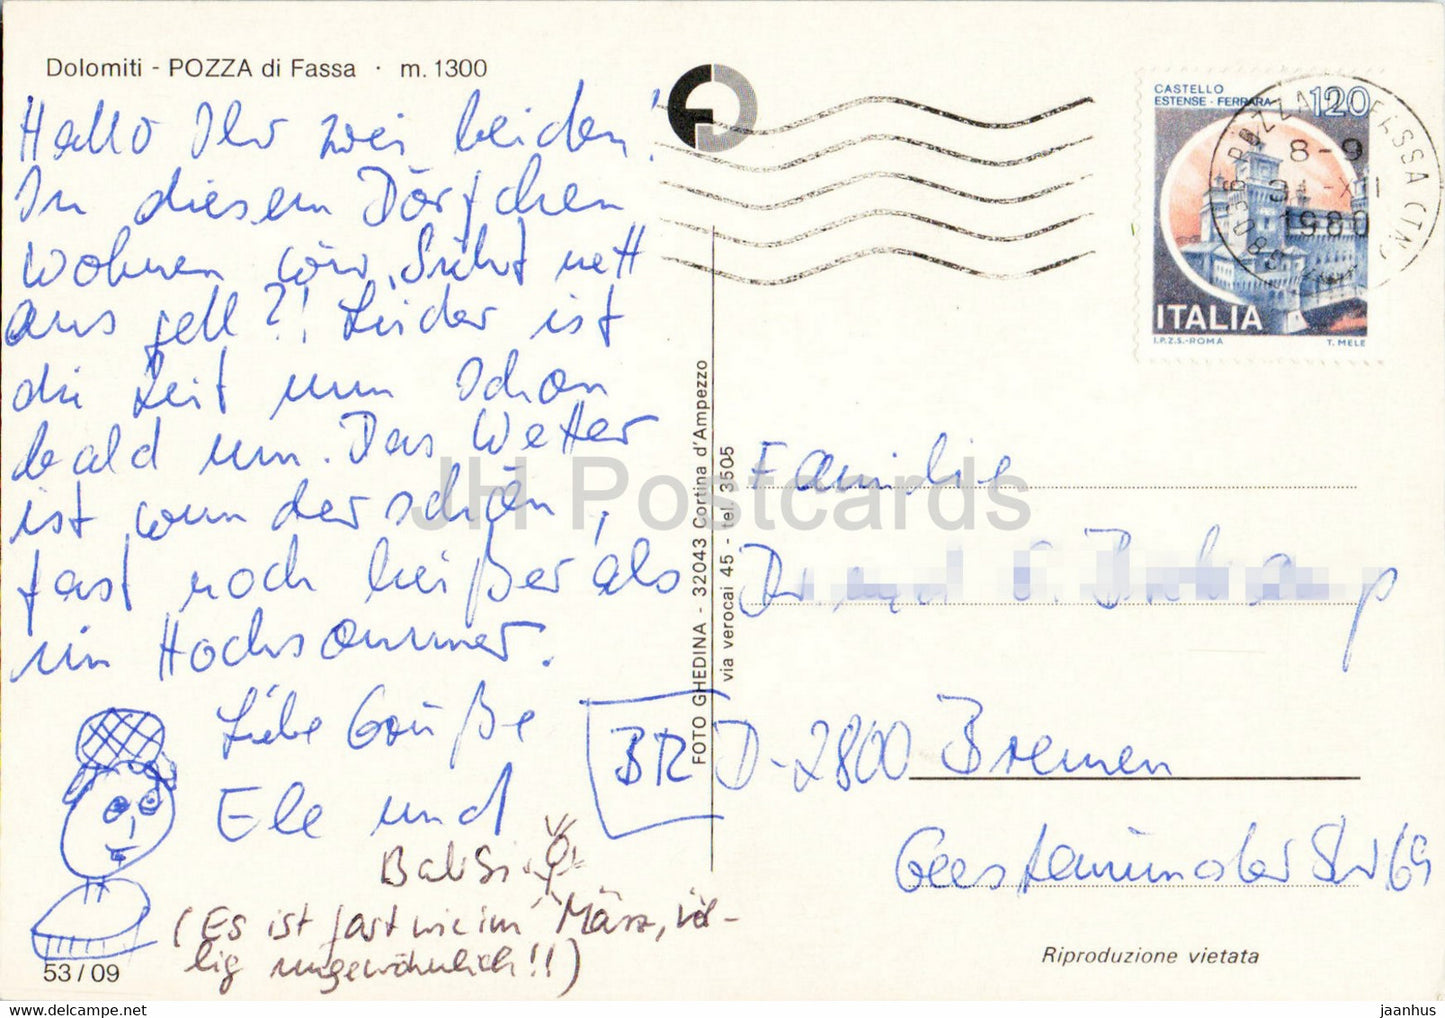 Dolomiti - POZZA di Fassa · m. 1300
Hallo Ihr zwei beiden!
In diesem Dörfchen
wohnen wir. Sieht nett
aus gell?! Leider ist
die Zeit nun schon
bald um. Das Wetter
ist wunderschön,
fast noch heißer als
im Hochsommer.
Liebe Grüße
Ele und
Balisi
(Es ist fast wie im März, völ-
lig ungewöhnlich!!)
53/09
FOTO GHEDINA - 32043 Cortina d'Ampezzo
via verocai 45 - tel. 3505
CASTELLO
ESTENSE - FERRARA
120
ITALIA
I.P.Z.S.-ROMA
T. MELE
POZZA DI FASSA (TN)
8-9
1980
Familie
BR
D-2800 Bremen
Geestemünder Str 69
Riproduzione vietata
JH Postcards
jaanhus